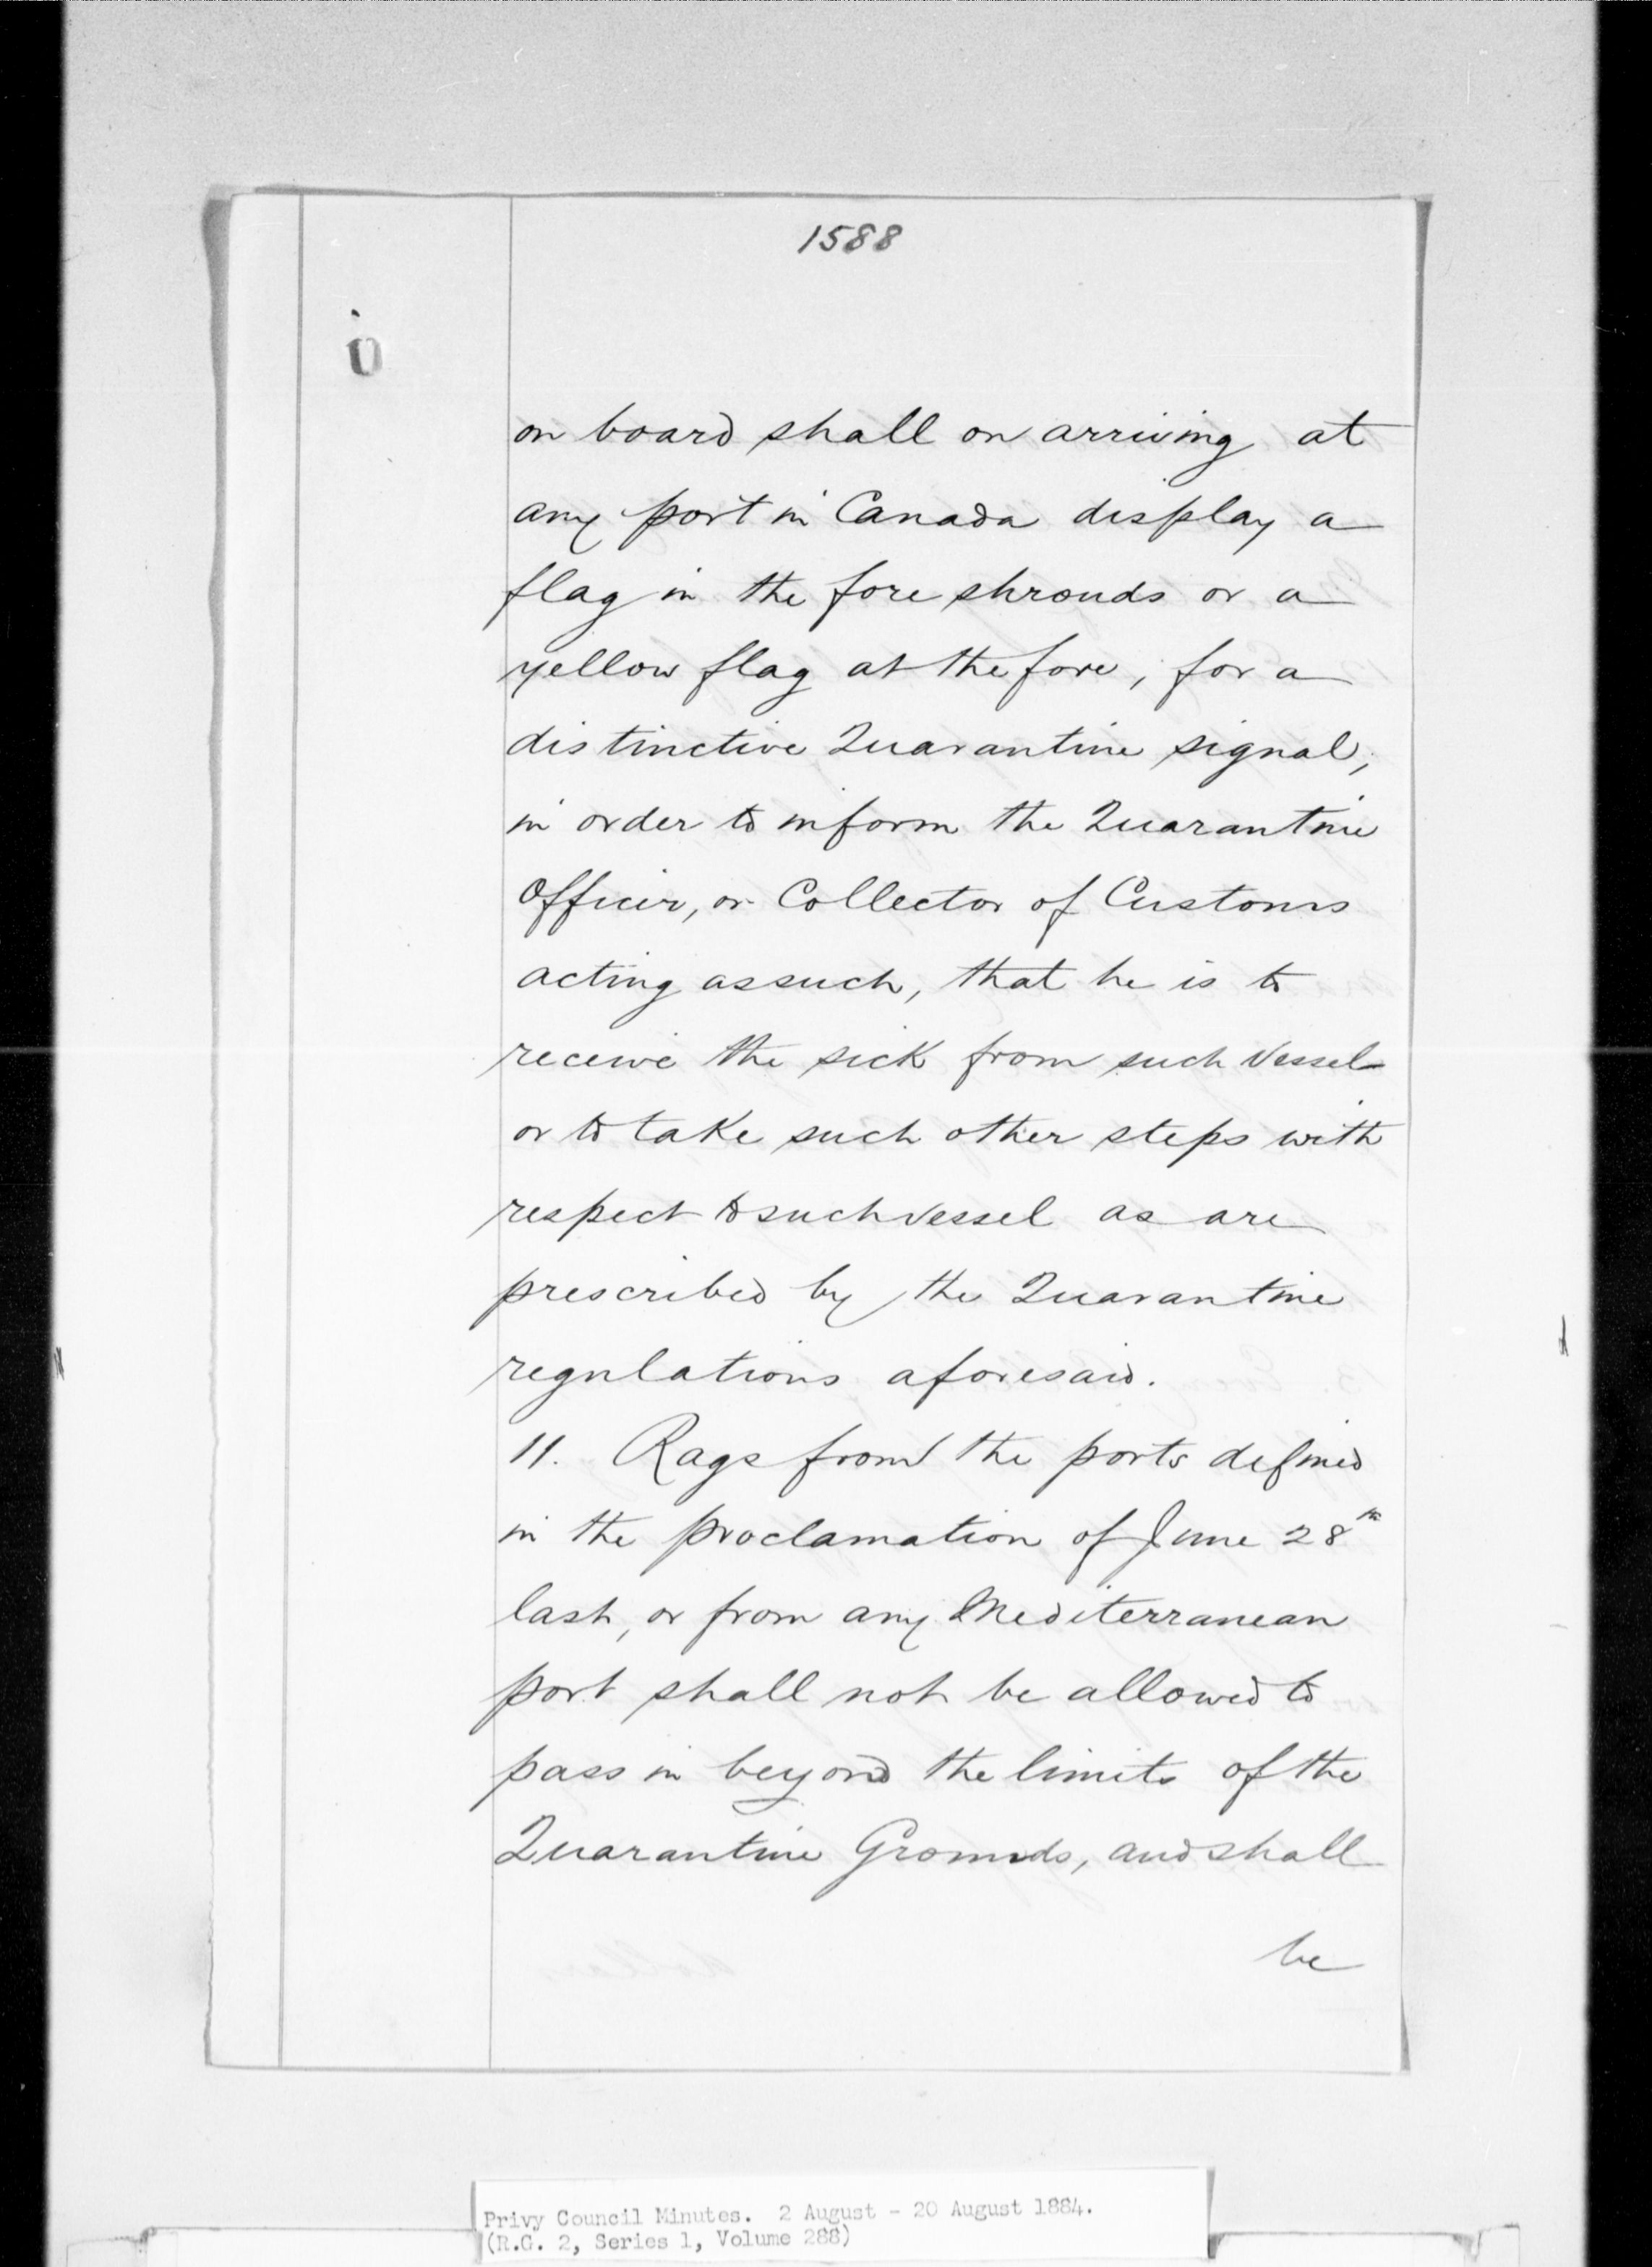 1588
on board shall on arriving at
any port in Canada display a
flag in the fore shrouds or a
yellow flag at the fore, for a
distinctive Quarantine signal,
in order to inform the Quarantine
Officer, or Collector of Customs
acting as such, that he is to
receive the sick from such vessel
or to take such other steps with
respect to such vessel as are
prescribed by the Quarantine
regulations aforesaid.
11. Rags from the ports defined
in the proclamation of June 28th
last, or from any Mediterranean
port shall not be allowed to
pass in beyond the limits of the
Quarantine Grounds, and shall
be
Privy Council Minutes. 2 August - 20 August 1884.
(R.G. 2, Series 1, Volume 288)